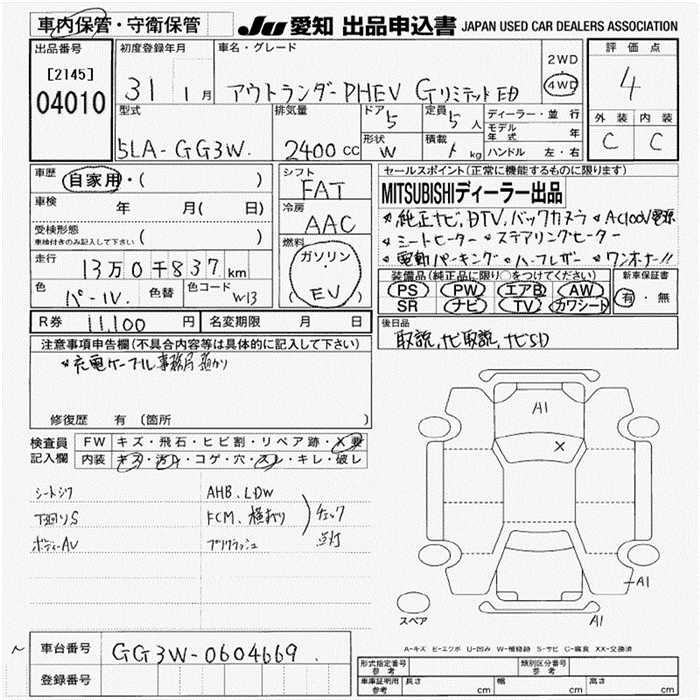 車内保管・守衛保管
JU 愛知 出品申込書 JAPAN USED CAR DEALERS ASSOCIATION
出品番号
[2145]
04010
初度登録年月
31 1月
車名・グレード
アウトランダーPHEV Gリミテッド ED
2WD
4WD
評価点
4
外装 内装
C C
型式
5LA-GG3W.
排気量
2400 cc
ドア 5
形状 W
定員 5人
積載 kg
ディーラー・並行
モデル年式 年
ハンドル 左・右
車歴 自家用・( )
車検 年 月( 日)
受検形態
車検付きのみ記入して下さい ( )
走行 13万0千837km
色 パール.
色替
色コード W13
シフト
FAT
冷房
AAC
燃料
ガソリン・
EV
セールスポイント(正常に機能するものに限ります)
MITSUBISHIディーラー出品
*純正ナビ,DTV,バックカメラ *AC100V電源
*シートヒーター *ステアリングヒーター
*電動パーキング *ハーフレザー *ワンオーナー!!
装備品(純正品に限り○をつけてください)
PS PW エアB AW
SR ナビ TV カワシート
新車保証書
有・無
R券 11,100 円
名変期限 月 日
後日品
取説,ナビ取説,ナビSD
注意事項申告欄(不具合内容等は具体的に記入して下さい)
*充電ケーブル事務局預かり
修復歴 有 (箇所 )
検査員
記入欄
FW キズ・飛石・ヒビ割・リペア跡・X要
内装 キズ・汚れ・コゲ・穴・スレ・キレ・破レ
シートシワ
下廻りS
ボディーAU
AHB,LDW
FCM,横すべり
プリクラッシュ
チェック
点灯
A1
X
A1
A1
スペア
A-キズ E-エクボ U-凹み W-補修跡 S-サビ C-腐食 XX-交換済
車台番号 GG3W-0604669.
登録番号
形式指定番号
参考
類別区分番号
参考
車庫証明用
参考
長さ cm
幅 cm
高さ cm